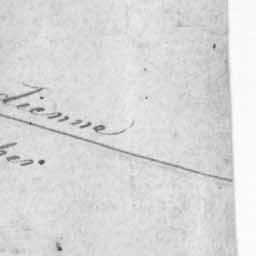 dienne
her.